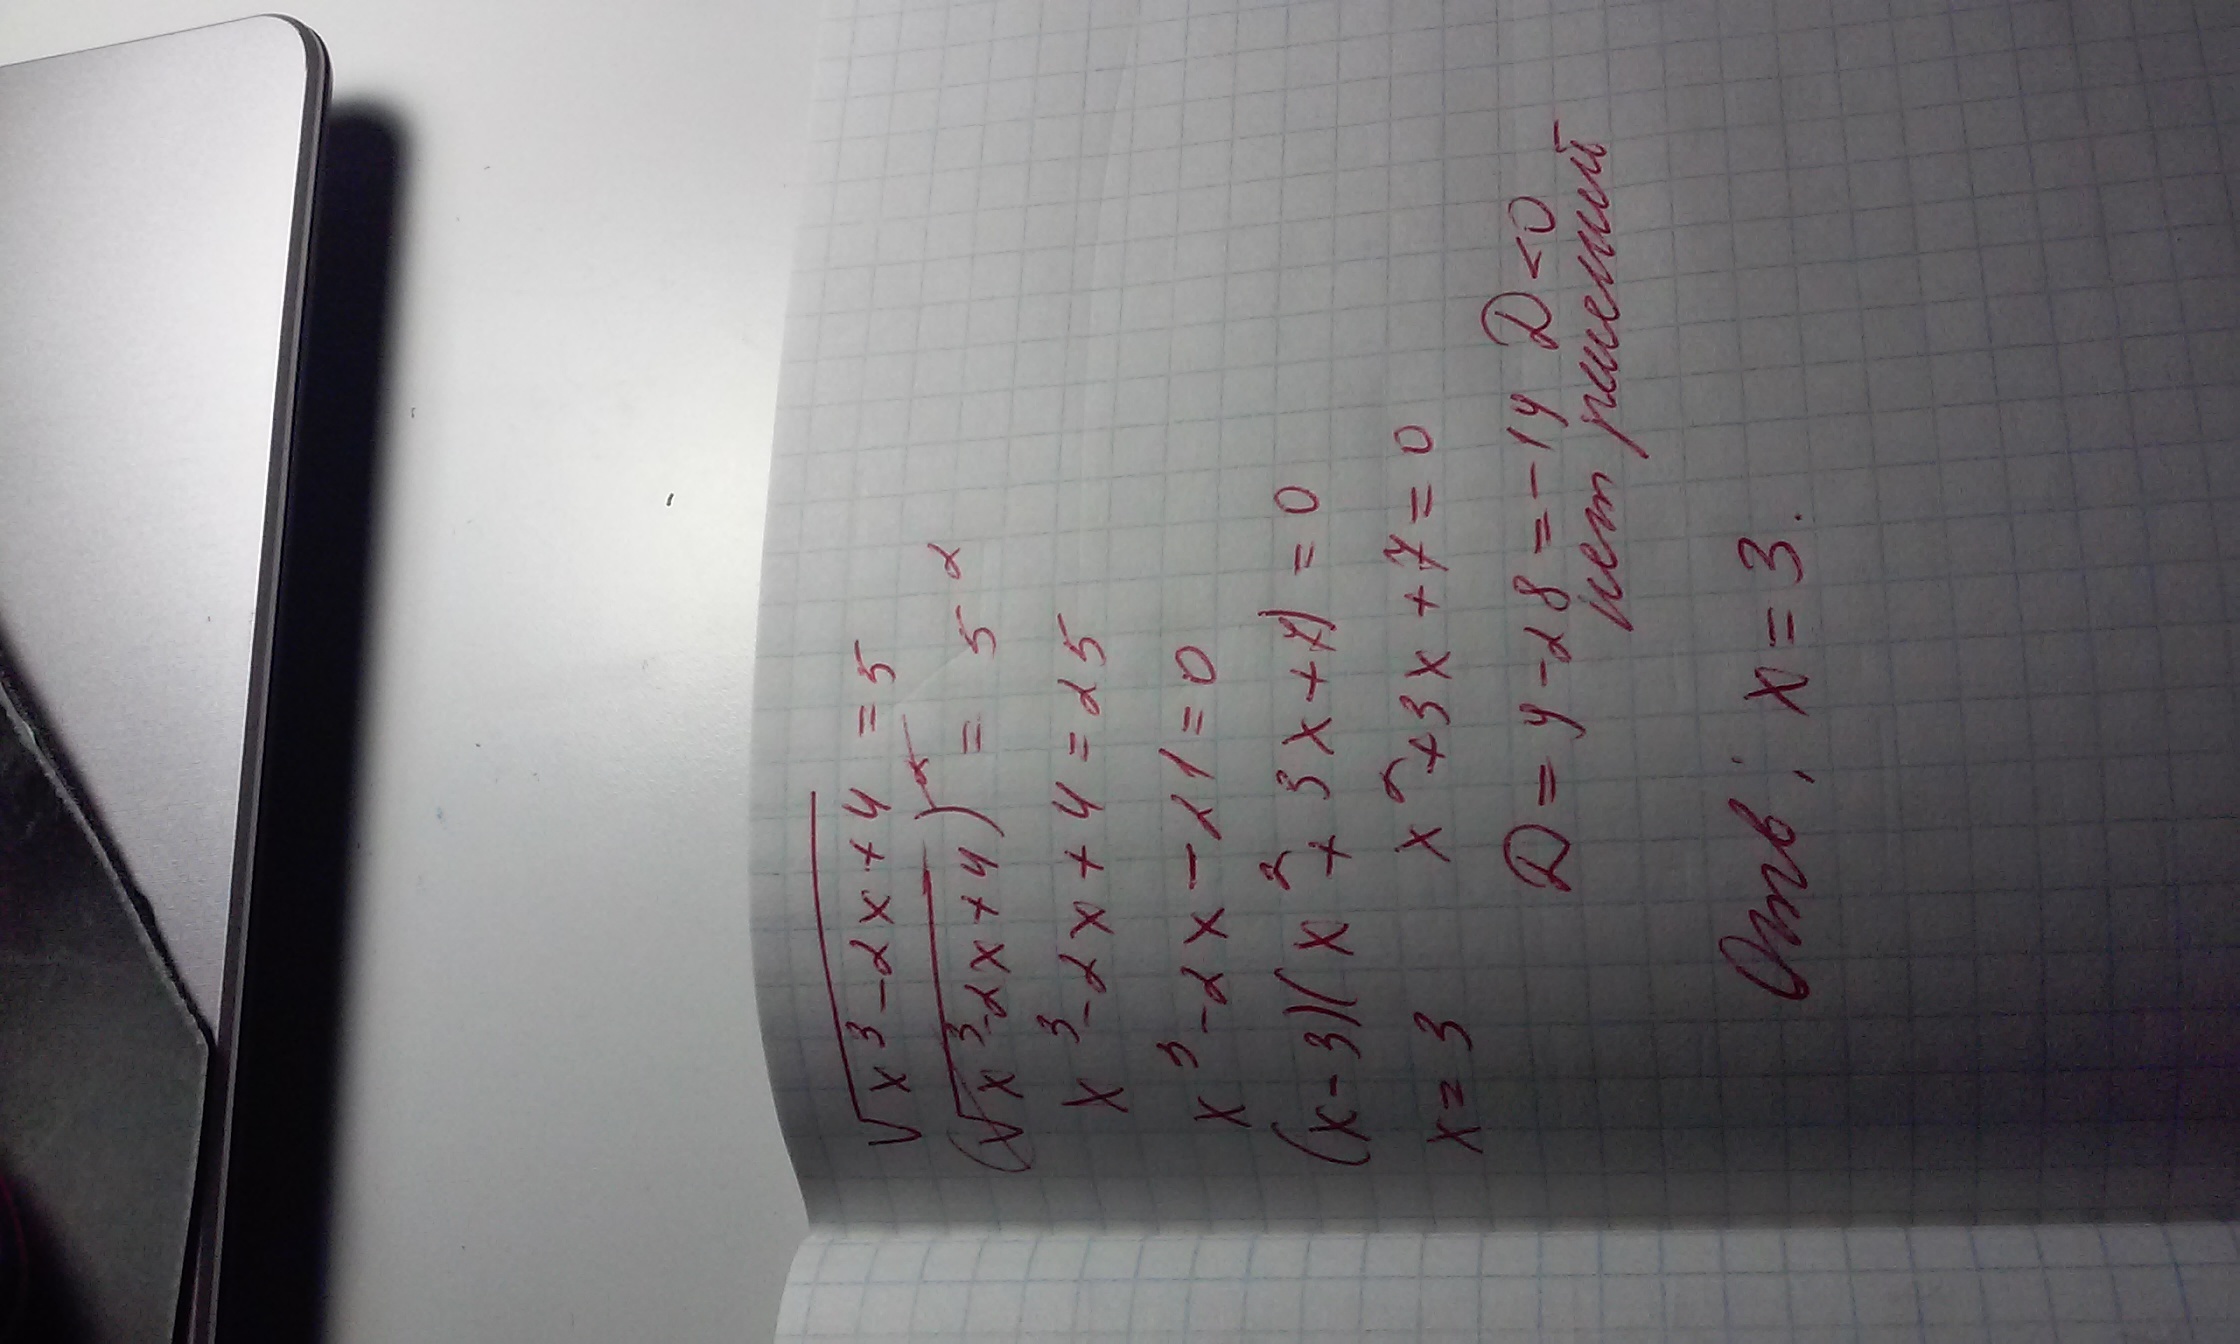 √(x³-2x+4) = 5
(√(x³-2x+4))² = 5²
x³-2x+4=25
x³-2x-21=0
(x-3)(x²+3x+7)=0
x=3 x²+3x+7=0
D=9-28=-19 D<0
нет решений
Отв: x=3.